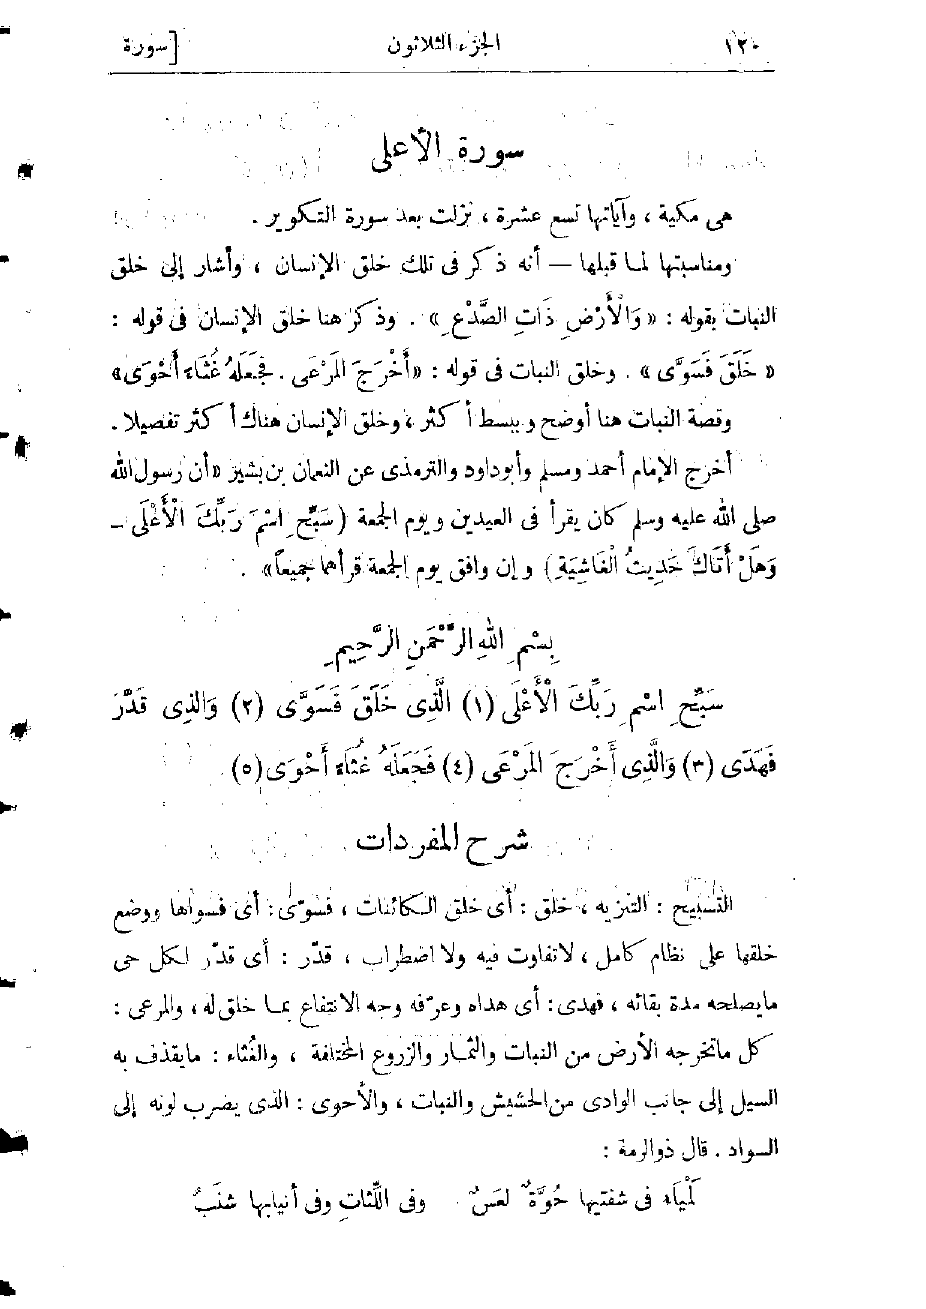 ١٢٠ الجزء الثلاثون [سورة
سورة الأعلى
هى مكية ، وآياتها تسع عشرة ، نزلت بعد سورة التكوير .
ومناسبتها لما قبلها — أنه ذكر فى تلك خلق الإنسان ، وأشار إلى خلق
النبات بقوله : « وَالْأَرْضِ ذَاتِ الصَّدْعِ » . وذكر هنا خلق الإنسان فى قوله :
« خَلَقَ فَسَوَّى » . وخلق النبات فى قوله : « أَخْرَجَ الْمَرْعَى . فَجَعَلَهُ غُثَاءً أَحْوَى »
وقصة النبات هنا أوضح وببسط أكثر ، وخلق الإنسان هناك أكثر تفصيلا .
أخرج الإمام أحمد ومسلم وأبو داود والترمذى عن النعمان بن بشير « أن رسول الله
صلى الله عليه وسلم كان يقرأ فى العيدين ويوم الجمعة ( سَبِّحِ اسْمَ رَبِّكَ الْأَعْلَى –
وَهَلْ أَتَاكَ حَدِيثُ الْغَاشِيَةِ ) وإن وافق يوم الجمعة قرأهما جميعاً » .
بِسْمِ اللهِ الرَّحْمَنِ الرَّحِيمِ
سَبِّحِ اسْمِ رَبِّكَ الْأَعْلَى (١) الَّذِى خَلَقَ فَسَوَّى (٢) وَالذِى قَدَّرَ
فَهَدَى (٣) وَالَّذِى أَخْرَجَ الْمَرْعَى (٤) فَجَعَلَهُ غُثَاءً أَحْوَى (٥)
شرح المفردات
التسبيح : التنزيه ، خلق : أى خلق الكائنات ، فسوّى : أى فسواها ووضع
خلقها على نظام كامل ، لا تفاوت فيه ولا اضطراب ، قدّر : أى قدّر لكل حى
ما يصلحه مدة بقائه ، فهدى : أى هداه وعرّفه وجه الانتفاع بما خلق له ، والمرعى :
كل ما تخرجه الأرض من النبات والثمار والزروع المختلفة ، والغُثاء : ما يقذف به
السيل إلى جانب الوادى من الحشيش والنبات ، والأحوى : الذى يضرب لونه إلى
السواد . قال ذو الرمة :
لَمْيَاء فى شفتيها حُوَّةٌ لعَسٌ وفى اللِّثاتِ وفى أنيابها شنَبٌ